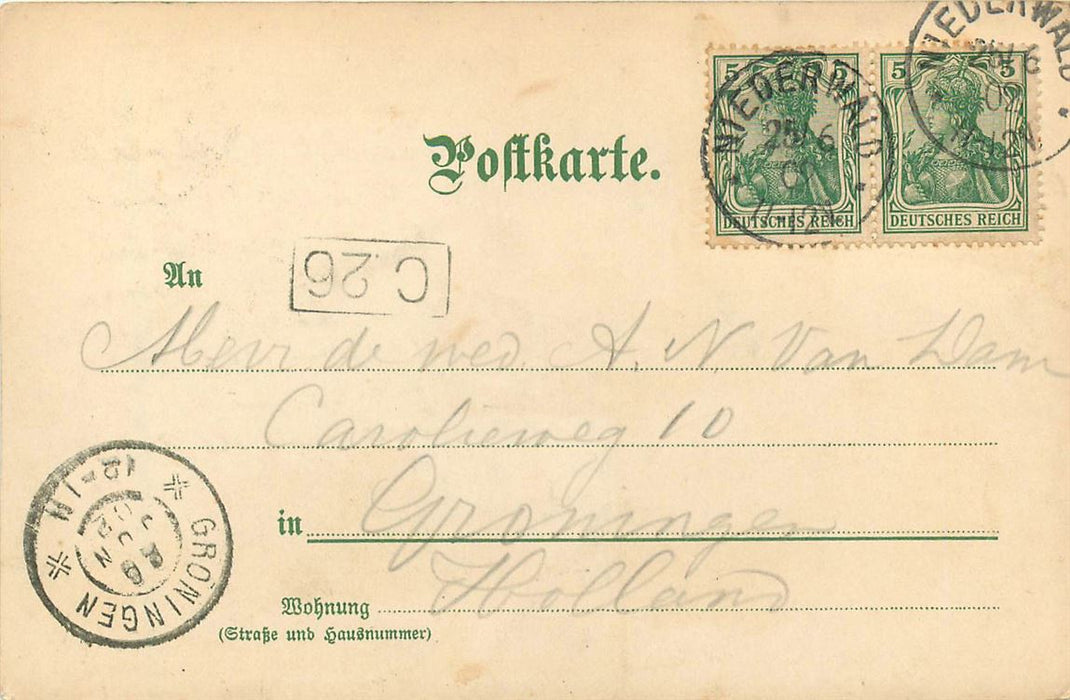 NIEDERWALD
5 5
5 5
NIEDERWALD
25/6
DEUTSCHES REICH
DEUTSCHES REICH
Postkarte.
C. 26
An
Mevr. de wed. A. N. Van Dam
Carolieweg 10
in Groningen
Holland
Wohnung
(Straße und Hausnummer)
GRONINGEN
12-1N
JUN